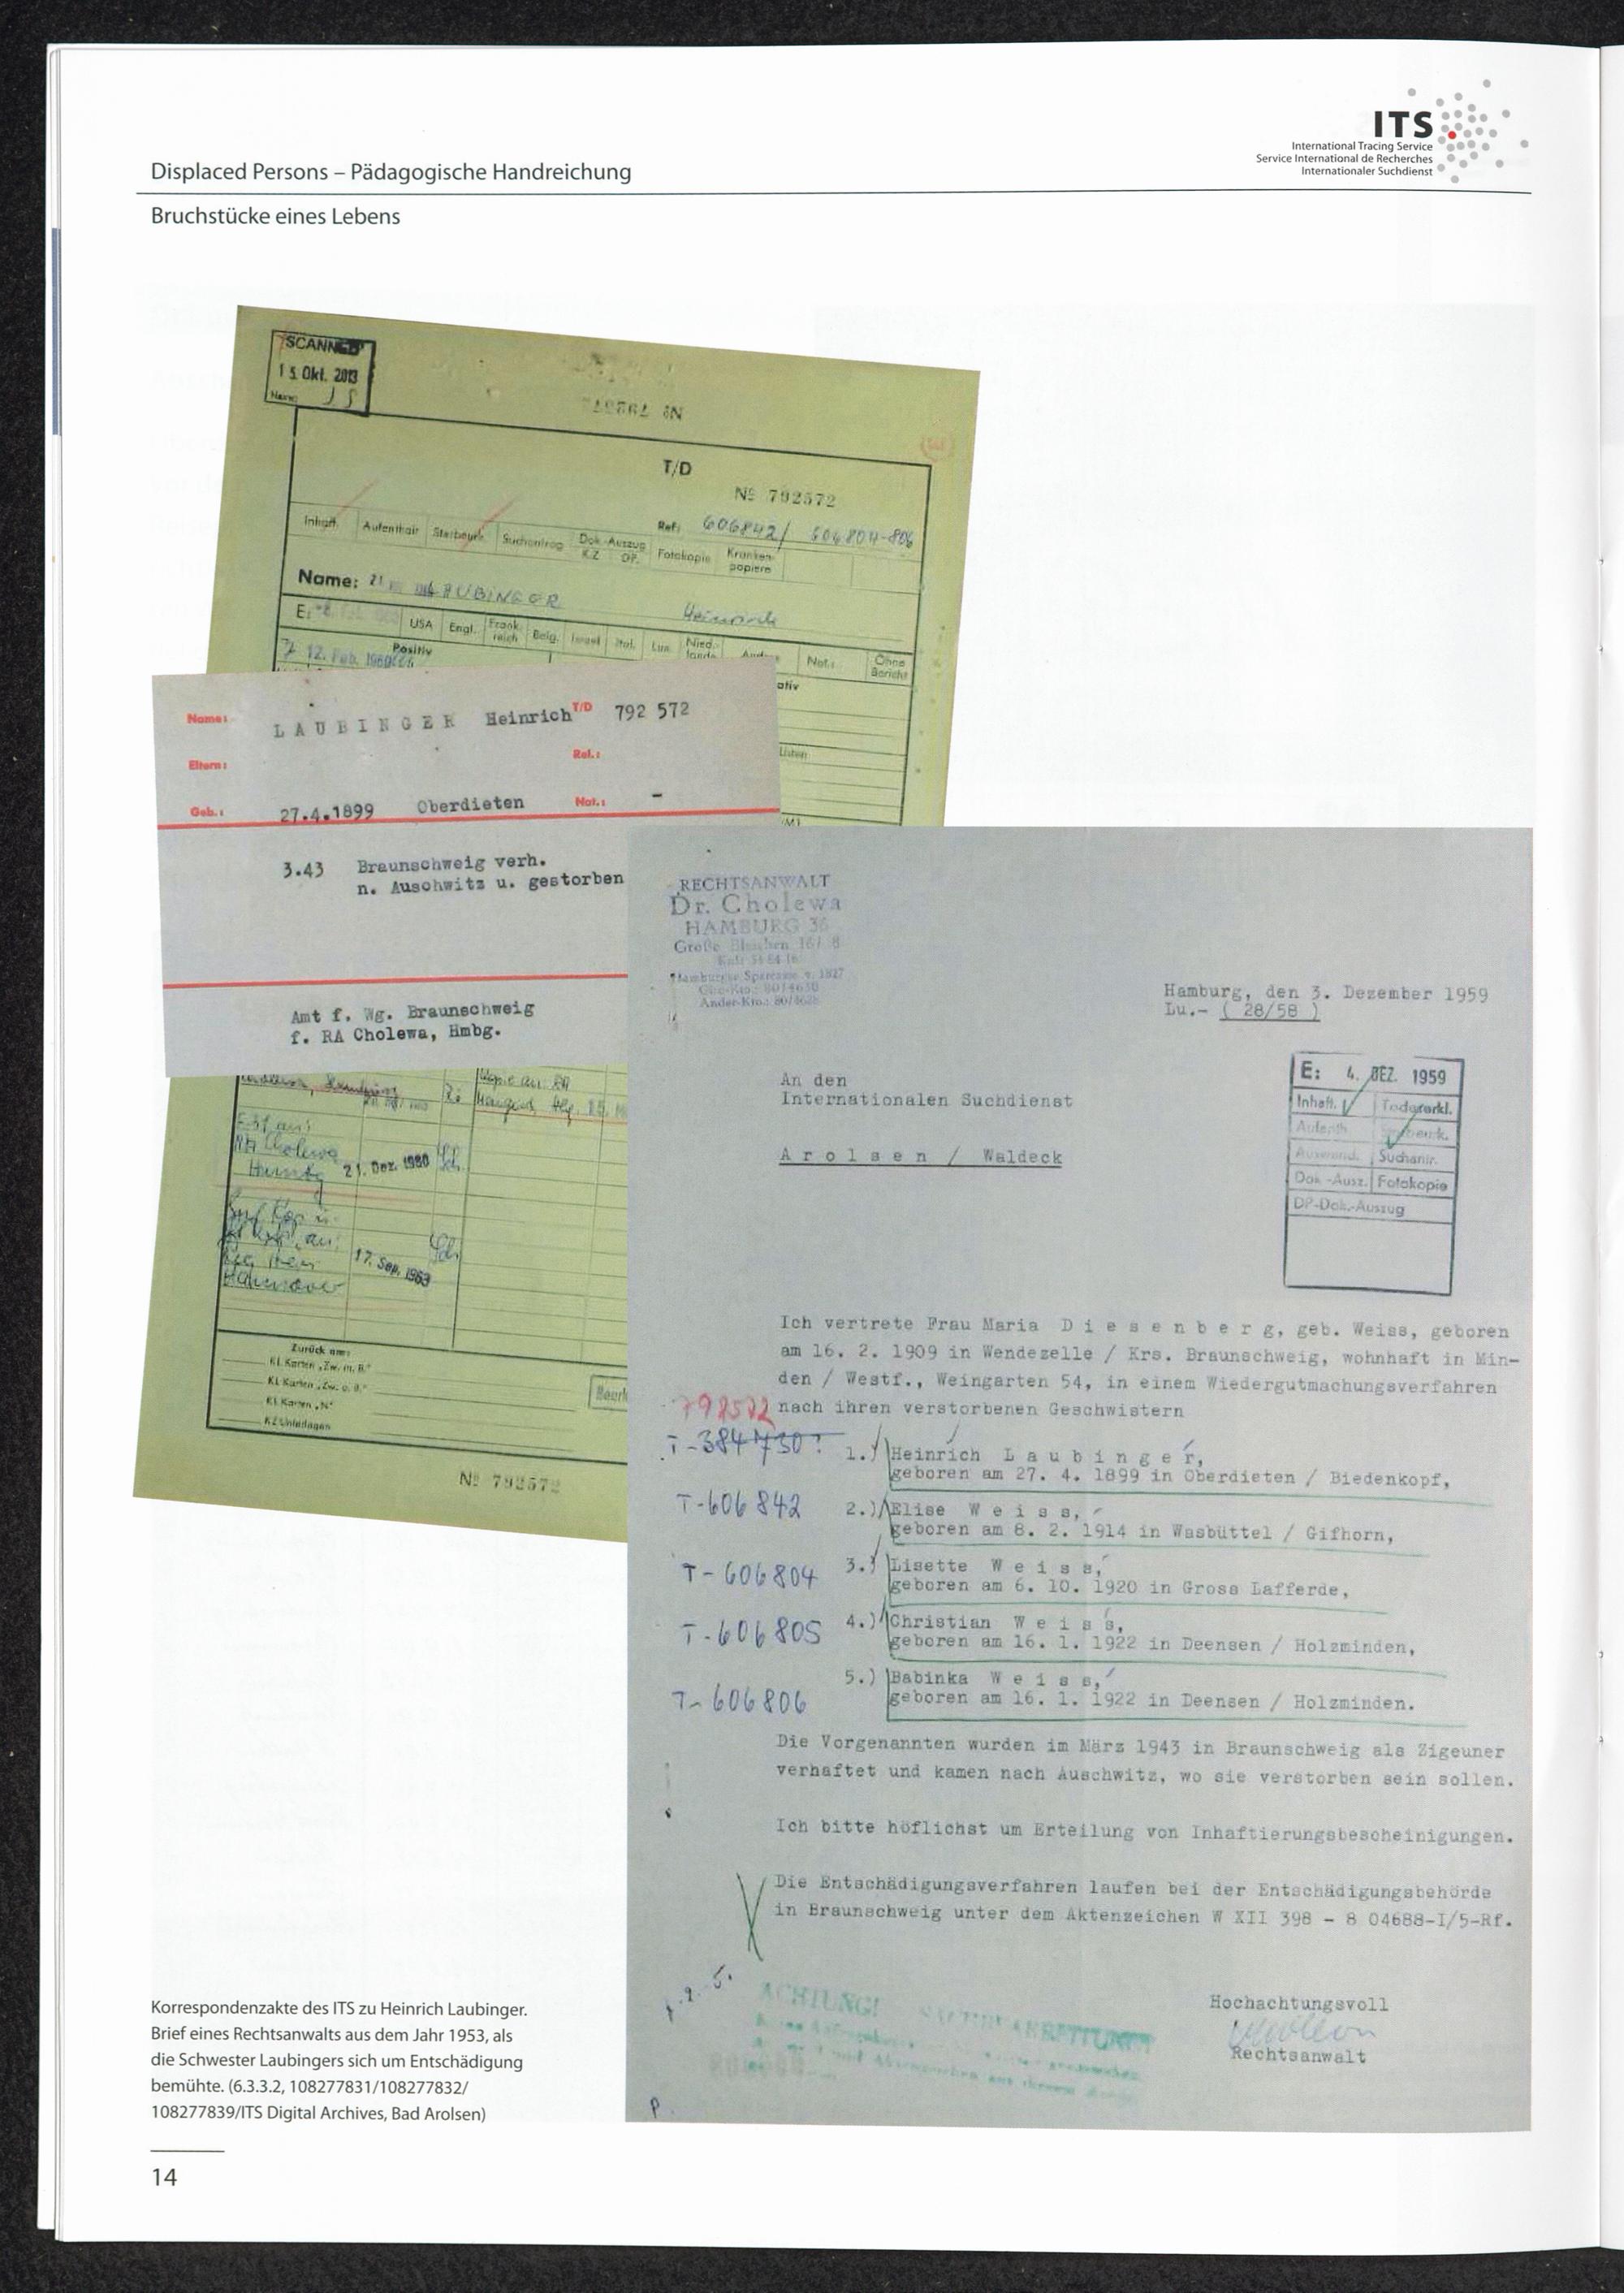 ITS
International Tracing Service
Service International de Recherches
Internationaler Suchdienst
Displaced Persons – Pädagogische Handreichung
Bruchstücke eines Lebens
SCANNED
15. Okt. 2013
T/D
№ 792572
Ref: 606842/ 606804-806
Inhaft. Aufenthalt Sterbeurk. Suchantrag Dok.-Auszug KZ DP. Fotokopie Kranken-papiere
Name: LAUBINGER Heinrich
E: USA Engl. Frank-reich Belg. Israel Ital. Lux. Nied.-lande Nat.: Ohne Bericht
12. Feb. 1960 Positiv
ativ
Listen
Name: LAUBINGER Heinrich T/D 792 572
Eltern: Rel.:
Geb.: 27.4.1899 Oberdieten Nat.: -
3.43 Braunschweig verh.
n. Auschwitz u. gestorben
Amt f. Wg. Braunschweig
f. RA Cholewa, Hmbg.
RA Cholewa
21. Dez. 1960
17. Sep. 1963
Hannover
Zurück am:
KL Karten „Zw. m. B.“
KL Karten „Zw. o. B.“
KL Karten „N“
KZ Unterlagen
№ 792572
RECHTSANWALT
Dr. Cholewa
HAMBURG 36
Große Bleichen
Hamburger Sparcasse v. 1827
Hamburg, den 3. Dezember 1959
Lu.- ( 28/58 )
E: 4. DEZ. 1959
Inhaft. Todeserkl.
Aufenth.
Auswand. Suchantr.
Dok.-Ausz. Fotokopie
DP-Dok.-Auszug
An den
Internationalen Suchdienst
Arolsen / Waldeck
Ich vertrete Frau Maria Diesenberg, geb. Weiss, geboren
am 16. 2. 1909 in Wendezelle / Krs. Braunschweig, wohnhaft in Min-
den / Westf., Weingarten 54, in einem Wiedergutmachungsverfahren
792572 nach ihren verstorbenen Geschwistern
T-384730 1.) Heinrich Laubinger,
geboren am 27. 4. 1899 in Oberdieten / Biedenkopf,
T-606842 2.) Elise Weiss,
geboren am 8. 2. 1914 in Wasbüttel / Gifhorn,
T-606804 3.) Lisette Weiss,
geboren am 6. 10. 1920 in Gross Lafferde,
T-606805 4.) Christian Weiss,
geboren am 16. 1. 1922 in Deensen / Holzminden,
T-606806 5.) Babinka Weiss,
geboren am 16. 1. 1922 in Deensen / Holzminden.
Die Vorgenannten wurden im März 1943 in Braunschweig als Zigeuner
verhaftet und kamen nach Auschwitz, wo sie verstorben sein sollen.
Ich bitte höflichst um Erteilung von Inhaftierungsbescheinigungen.
Die Entschädigungsverfahren laufen bei der Entschädigungsbehörde
in Braunschweig unter dem Aktenzeichen W XII 398 - 8 04688-I/5-Rf.
ACHTUNG!
Hochachtungsvoll
Rechtsanwalt
Korrespondenzakte des ITS zu Heinrich Laubinger.
Brief eines Rechtsanwalts aus dem Jahr 1953, als
die Schwester Laubingers sich um Entschädigung
bemühte. (6.3.3.2, 108277831/108277832/
108277839/ITS Digital Archives, Bad Arolsen)
14